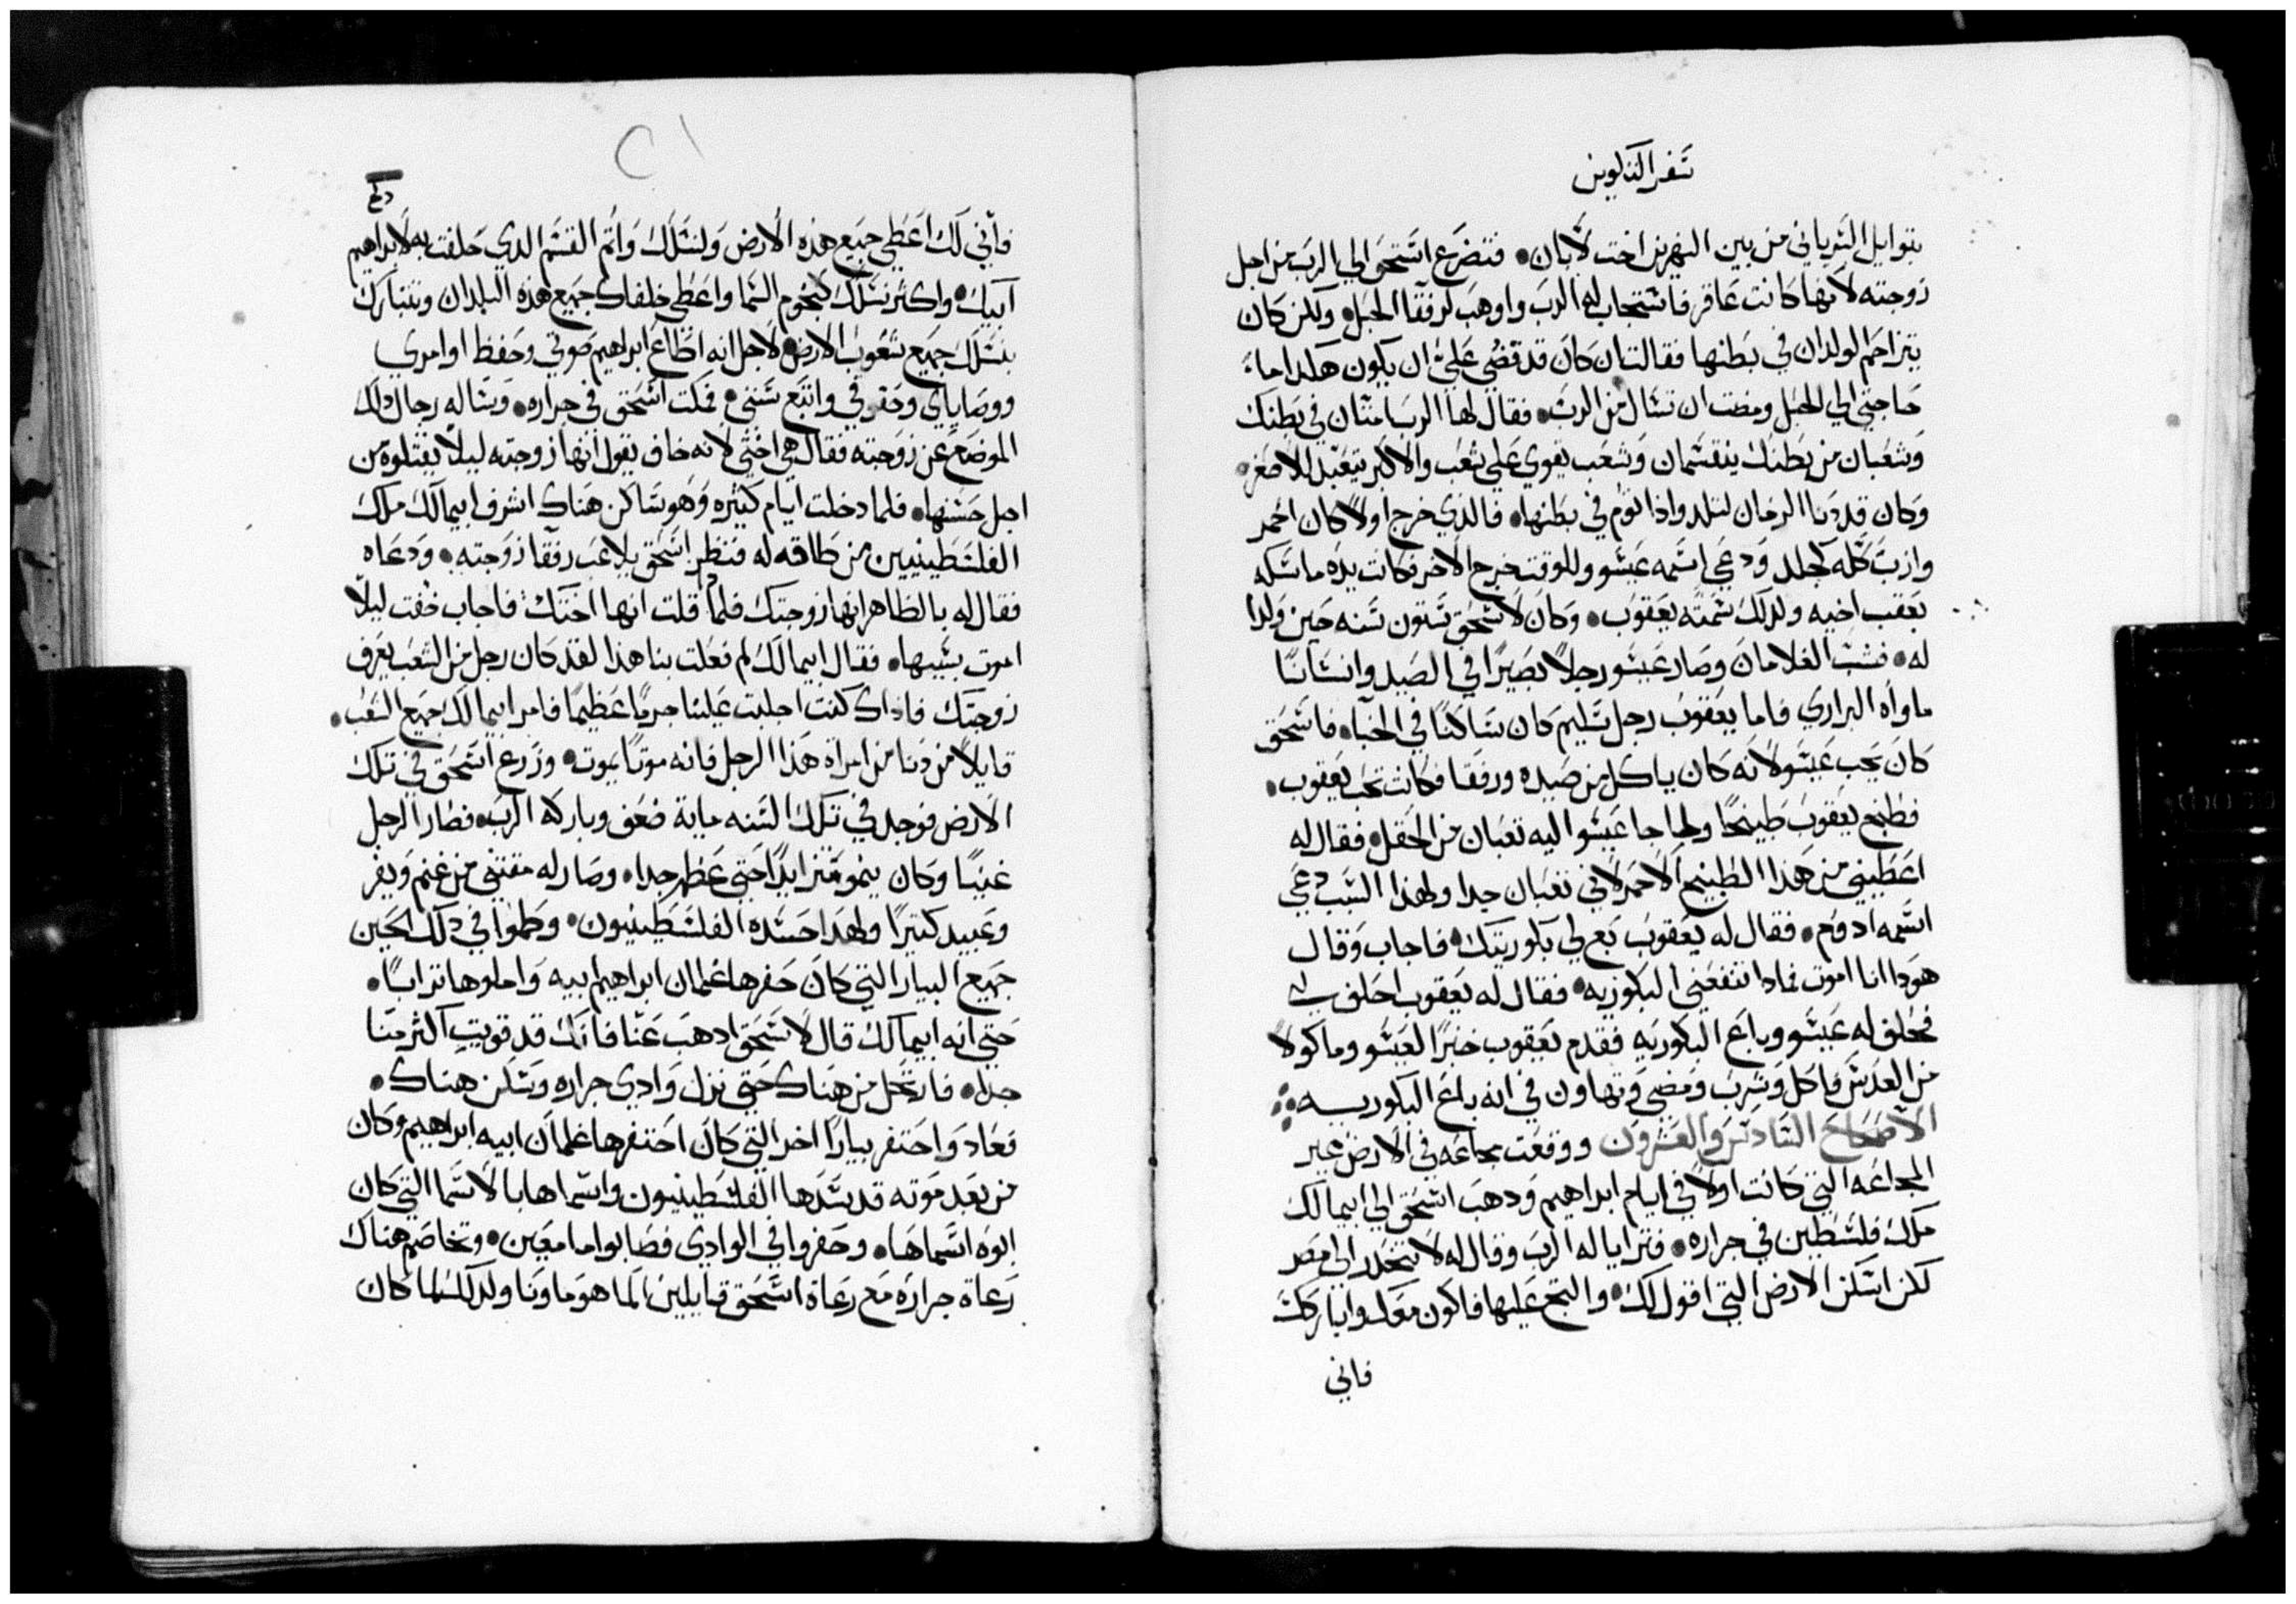 سفر التكوين
بتوايل السرياني من بين النهرين اخت لابان • فتضرع اسحق الي الرب من اجل
زوجته لانها كانت عاقر فاستجاب له الرب واوهب لرفقا الحبل • ولكن كان
يتزاحم الولدان في بطنها فقالت ان كان قد قضي علي ان يكون هكدا ما
حاجتي الي الحبل ومضت ان تسال من الرب • فقال لها الرب امتان في بطنك
وشعبان من بطنك ينقسمان وشعب يقوي علي شعب والاكبر يتعبد للاصغر •
وكان قد دنا الزمان لتلد واذا توم في بطنها • فالذي خرج اولا كان احمر
وازب كله كجلد ودعي اسمه عيسو وللوقت خرج الاخر فكانت يده ماسكه
بعقب اخيه ولدلك سمته يعقوب • وكان لاسحق ستون سنه حين ولدا
له • فشب الغلامان وصار عيسو رجلا بصيرا في الصيد وانسانا
ماواه البراري فاما يعقوب رجل سليم كان ساكنا في الخبا • فاسحق
كان يحب عيسو لانه كان ياكل من صيده ورفقا فكانت تحب يعقوب •
فطبخ يعقوب طبيخا ولما جا عيسو اليه تعبان من الحقل • فقال له
اعطيني من هذا الطبيخ الاحمر لاني تعبان جدا ولهذا السبب دعي
اسمه ادوم • فقال له يعقوب بع لي بكوريتك • فاجاب وقال
هودا انا اموت فمادا تنفعني البكوريه • فقال له يعقوب احلف لي
فحلف له عيسو وباع البكوريه فقدم يعقوب خبزا لعيسو وماكولا
من العدس فاكل وشرب ومضي وتهاون في انه باع البكوريه
الاصحاح السادس والعشرون ووقعت مجاعه في الارض غير
المجاعه التي كانت اولا في ايام ابراهيم ودهب اسحق الي ابيمالك
ملك فلسطين في جراره • فترايا له الرب وقال له لا تنحدر الي مصر
لكن اسكن الارض التي اقول لك • والتج عليها فاكون معك واباركك
فاني
فاني لك اعطي جميع هذه الارض ولنسلك واتم القسم الدي حلفت به لابراهيم
ابيك • واكثر نسلك كنجوم السما واعطي خلفاك جميع هذه البلدان وتتبارك
بنسلك جميع شعوب الارض • لاجل انه اطاع ابراهيم صوتي وحفظ اوامري
ووصاياي وحقوقي واتبع سنني • فمكت اسحق في جراره • وساله رجال داك
الموضع عن زوجته فقال هي اختي لانه خاف يقول انها زوجته ليلا يقتلوه من
اجل حسنها • فلما دخلت ايام كثيره وهو ساكن هناك اشرف ابيمالك ملك
الفلسطينيين من طاقه له فنظر اسحق يلاعب رفقا زوجته • ودعاه
فقال له بالظاهر انها زوجتك فلما قلت انها اختك • فاجاب خفت ليلا
اموت بسببها • فقال ابيمالك لم فعلت بنا هذا لقد كان رجل من الشعب يعرف
زوجتك فاداك كنت اجلبت علينا جرما عظيما فامر ابيمالك جميع الشعب •
قايلا من دنا من امراة هذا الرجل فانه موتا يموت • وزرع اسحق في تلك
الارض فوجد في تلك السنه ماية ضعف وباركه الرب • فصار الرجل
غنيا وكان ينمو متزايدا حتي عظم جدا • وصار له مقتني من غنم وبقر
وعبيد كتيرا ولهدا حسده الفلسطينيون • وطموا في دلك الحين
جميع البيار التي كان حفرها غلمان ابراهيم ابيه واملوها ترابا •
حتي انه ابيمالك قال لاسحق ادهب عنا فانك قد قويت اكثر منا
جدا • فارتحل من هناك حتي نزل وادي جراره وسكن هناك •
فعاد واحتفر بيارا اخر التي كان احتفرها غلمان ابيه ابراهيم وكان
من بعد موته قد سدها الفلسطينيون واسماها بالاسما التي كان
ابوه اسماها • وحفروا في الوادي فصابوا ما معين • وتخاصم هناك
رعاة جراره مع رعاة اسحق قايلين الما هو ماونا ولدلك لما كان